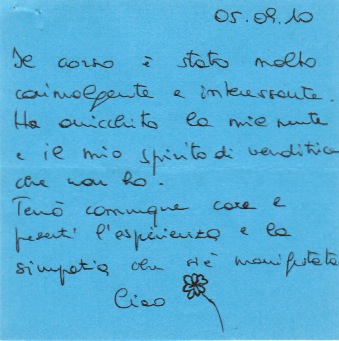 05.09.10
Il corso è stato molto
coinvolgente e interessante.
Ha arricchito la mia mente
e il mio spirito di venditrice
che non ho.
Terrò comunque care e
presenti l'esperienza e la
simpatia che si è manifestata
Ciao